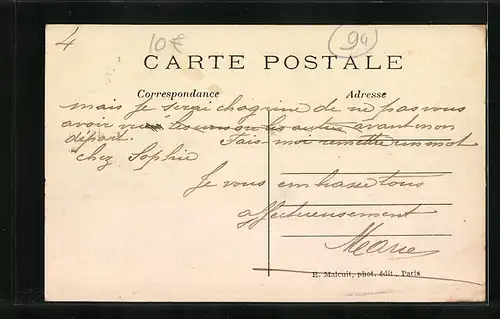 4
10€
94
CARTE POSTALE
Correspondance Adresse
mais je serai chagrine de ne pas vous
avoir vu les uns ou les autres avant mon
départ. Fais moi remettre un mot
chez Sophie
Je vous embrasse tous
affectueusement
Marie
E. Malcuit, phot. édit., Paris